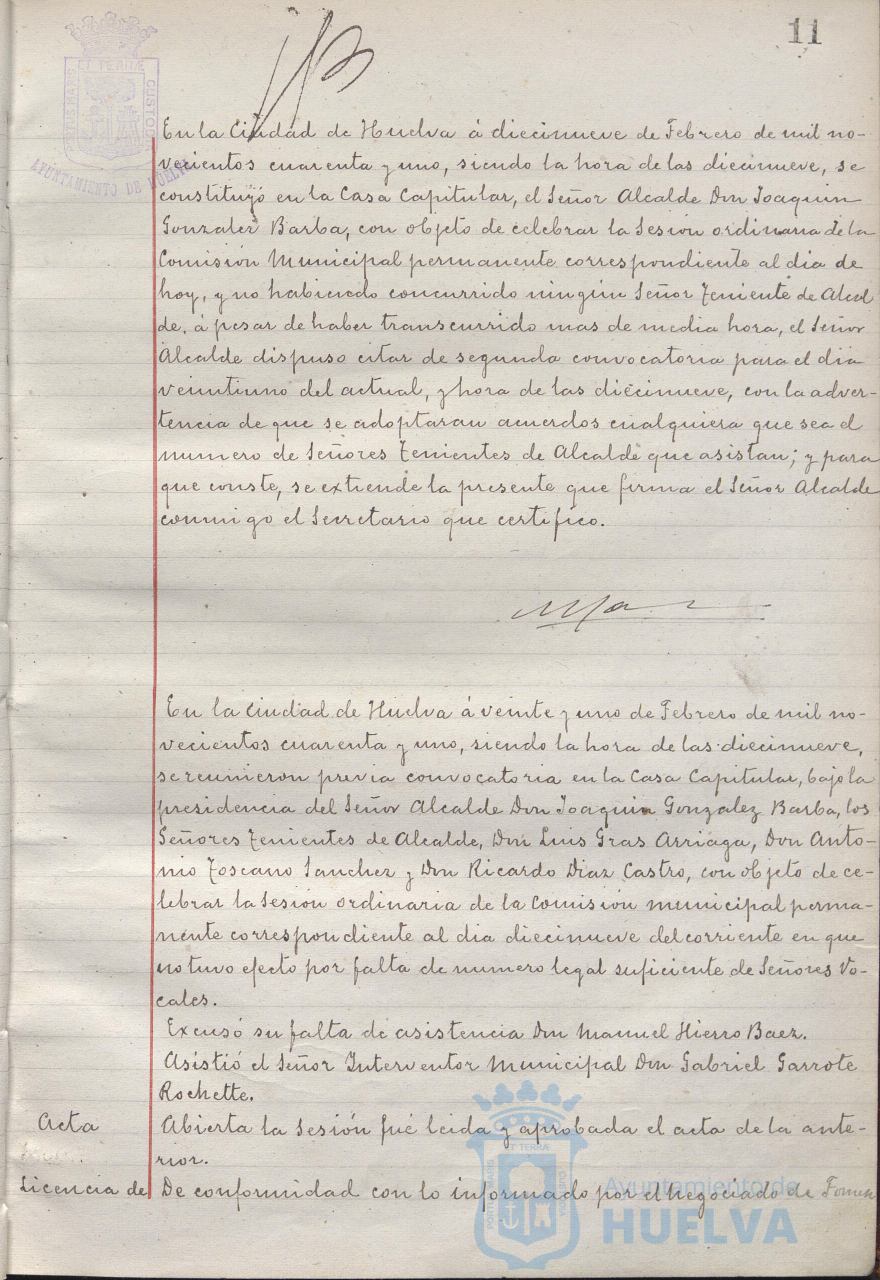 11
PORTUS MARIS ET TERRÆ CUSTODIA
AYUNTAMIENTO DE HUELVA
En la Ciudad de Huelva á diecinueve de Febrero de mil no-
vecientos cuarenta y uno, siendo la hora de las diecinueve, se
constituyó en la Casa Capitular, el Señor Alcalde Don Joaquin
Gonzalez Barba, con objeto de celebrar la Sesión ordinaria de la
Comisión Municipal permanente correspondiente al dia de
hoy, y no habiendo concurrido ningún Señor Teniente de Alcal
de, á pesar de haber transcurrido mas de media hora, el Señor
Alcalde dispuso citar de segunda convocatoria para el dia
veintiuno del actual, y hora de las diecinueve, con la adver-
tencia de que se adoptaran acuerdos cualquiera que sea el
numero de Señores Tenientes de Alcalde que asistan; y para
que conste, se extiende la presente que firma el Señor Alcalde
conmigo el Secretario que certifico.
En la Ciudad de Huelva á veinte y uno de Febrero de mil no-
vecientos cuarenta y uno, siendo la hora de las diecinueve,
se reunieron previa convocatoria en la Casa Capitular, bajo la
presidencia del Señor Alcalde Don Joaquin Gonzalez Barba, los
Señores Tenientes de Alcalde, Don Luis Gras Arriaga, Don Anto-
nio Toscano Sanchez y Don Ricardo Diaz Castro, con objeto de ce-
lebrar la Sesión ordinaria de la Comisión municipal perma-
nente correspondiente al dia diecinueve del corriente en que
no tuvo efecto por falta de numero legal suficiente de Señores Vo-
cales.
Excusó su falta de asistencia Don Manuel Hierro Baez.
Asistió el Señor Interventor Municipal Don Gabriel Garrote
Rochette.
Acta Abierta la Sesión fué leida y aprobada el acta de la ante-
rior.
Licencia de De conformidad con lo informado por el Negociado de Fomen
Ayuntamiento de
HUELVA